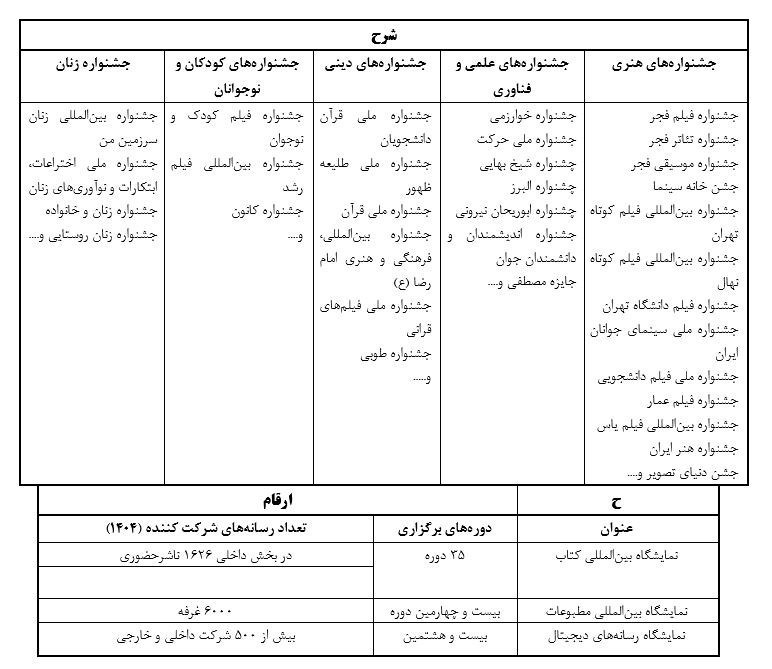 شرح
جشنواره‌های هنری
جشنواره‌های علمی و
فناوری
جشنواره‌های دینی
جشنواره‌های کودکان و
نوجوانان
جشنواره زنان
جشنواره فیلم فجر
جشنواره تئاتر فجر
جشنواره موسیقی فجر
جشن خانه سینما
جشنواره بین‌المللی فیلم کوتاه
تهران
جشنواره بین‌المللی فیلم کوتاه
نهال
جشنواره فیلم دانشگاه تهران
جشنواره ملی سینمای جوانان
ایران
جشنواره ملی فیلم دانشجویی
جشنواره فیلم عمار
جشنواره بین‌المللی فیلم یاس
جشنواره هنر ایران
جشن دنیای تصویر و....
جشنواره خوارزمی
جشنواره ملی حرکت
چشنواره شیخ بهایی
چشنواره البرز
چشنواره ابوریحان نیرونی
جشنواره اندیشمندان و
دانشمندان جوان
جایزه مصطفی و....
جشنواره ملی قرآن
دانشجویان
جشنواره ملی طلیعه
ظهور
جشنواره ملی قرآن
جشنواره بین‌المللی،
فرهنگی و هنری امام
رضا (ع)
جشنواره ملی فیلم‌های
قرانی
جشنواره طوبی
و.....
جشنواره فیلم کودک و
نوجوان
جشنواره بین‌المللی فیلم
رشد
جشنواره کانون
و....
جشنواره بین‌المللی زنان
سرزمین من
جشنواره ملی اختراعات،
ابتکارات و نوآوری‌های زنان
جشنواره زنان و خانواده
جشنواره زنان روستایی و....
ح
ارقام
عنوان
دوره‌های برگزاری
تعداد رسانه‌های شرکت کننده (۱۴۰۴)
نمایشگاه بین‌المللی کتاب
۳۵ دوره
در بخش داخلی ۱۶۲۶ ناشرحضوری
نمایشگاه بین‌المللی مطبوعات
بیست و چهارمین دوره
۶۰۰۰ غرفه
نمایشگاه رسانه‌های دیجیتال
بیست و هشتمین
بیش از ۵۰۰ شرکت داخلی و خارجی